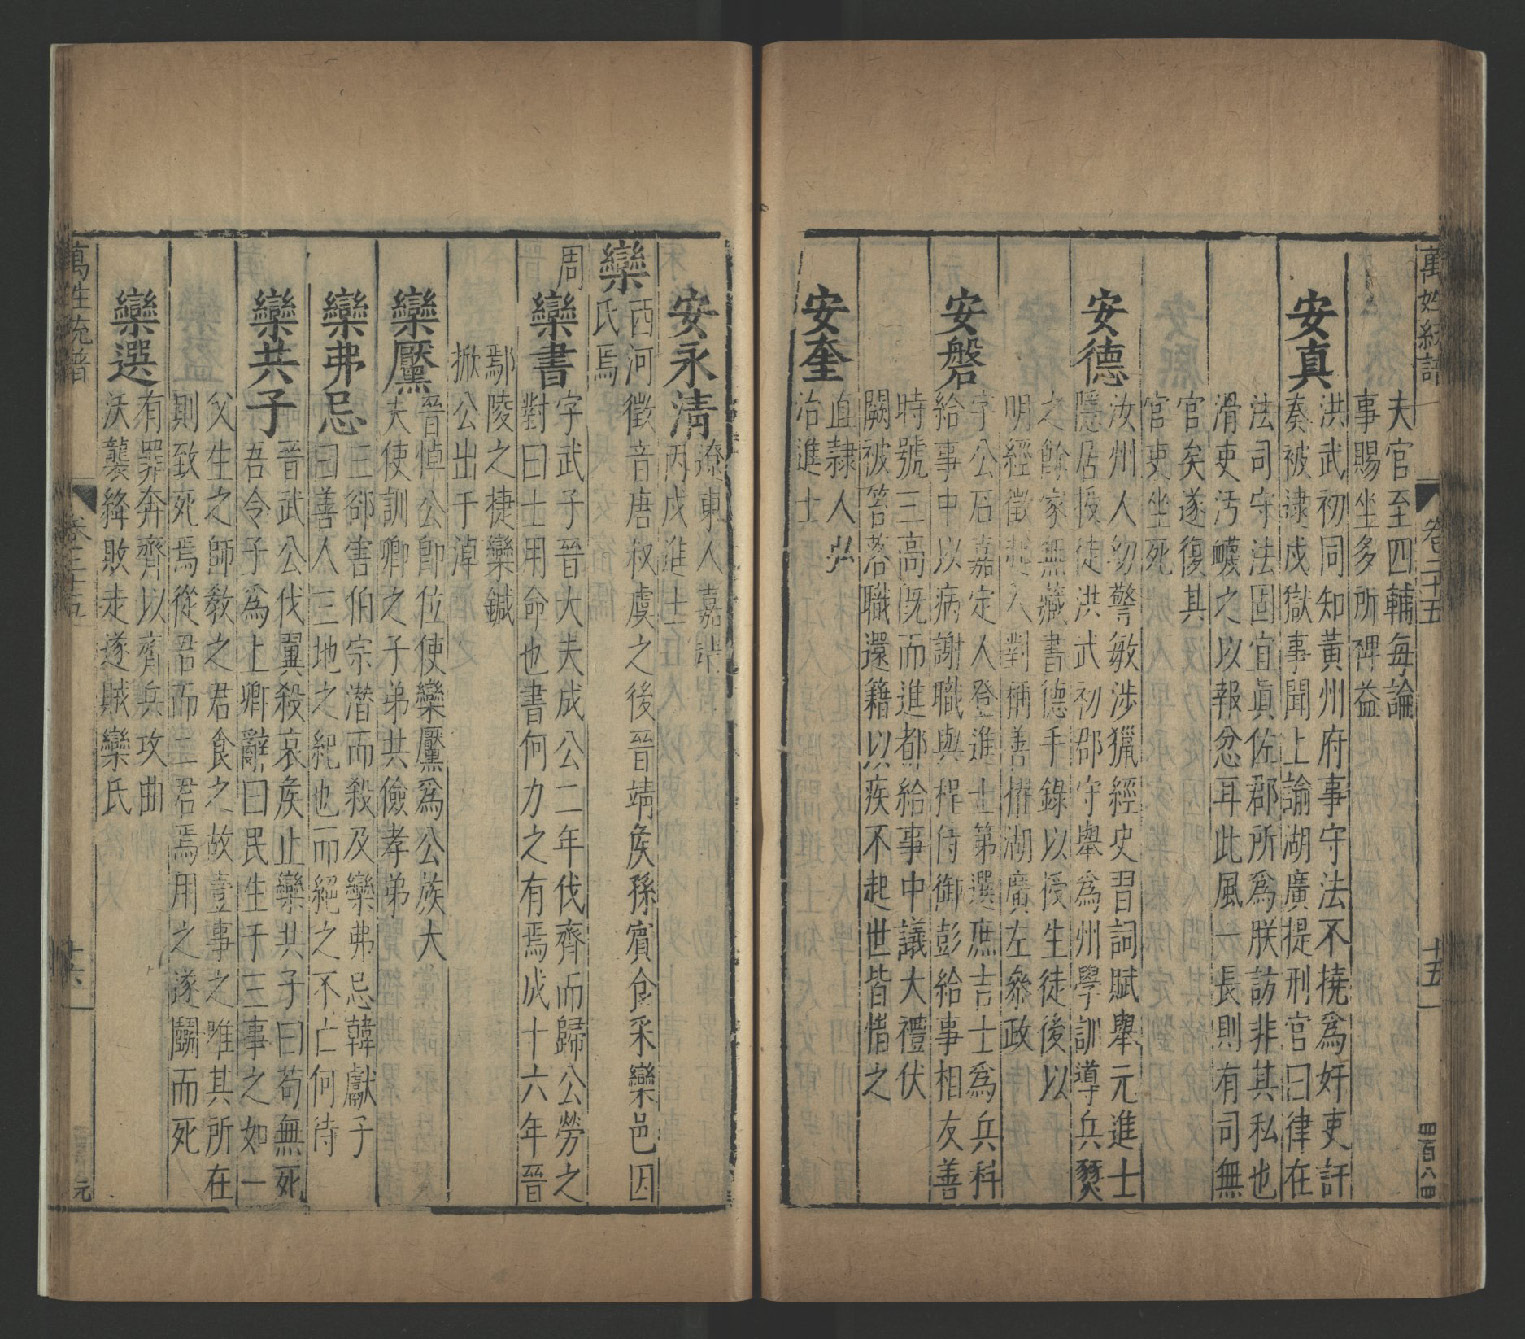 夫官至四輔每論
事賜坐多所裨益
安真
洪武初同知黃州府事守法不撓爲奸吏訐
奏被逮成獄事聞上諭湖廣提刑官曰律在
法司守法固宜眞佐郡所爲朕訪非其私也
滑吏汚衊之以報忿耳此風一長則有司無
官矣遂復其
官吏坐死
安德
汝州人幼警敏涉獵經史習詞賦舉元進士
隱居授徒洪武初郡守舉爲州學訓導兵燹
之餘家無藏書德手錄以授生徒後以
明經徵起入對稱善擢湖廣左叅政
安磐
字公石嘉定人登進士第選庶吉士爲兵科
給事中以病謝職與程侍御彭給事相友善
時號三高既而進都給事中議大禮伏
闕被笞落職還籍以疾不起世皆惜之
安奎
直隸人弘
治進士
萬姓統譜
卷二十五
十五
四百八四
安永清
遼東人嘉靖
丙戌進士
欒
西河徵音唐叔虞之後晉靖矦孫賓食采欒邑因
氏焉
周
欒書
字武子晉大夫成公二年伐齊而歸公勞之
對曰士用命也書何力之有焉成十六年晉
鄢陵之捷欒鍼
掀公出于淖
欒黶
晉悼公卽位使欒黶爲公族大
夫使訓卿之子弟共儉孝弟
欒弗忌
三郤害伯宗潜而殺及欒弗忌韓獻子
曰善人三地之紀也而絕之不亡何待
欒共子
晉武公伐翼殺哀矦止欒共子曰苟無死
吾令子爲上卿辭曰民生于三事之如一
父生之師敎之君食之故壹事之唯其所在
則致死焉從君而二君焉用之遂鬭而死
欒選
有罪奔齊以齊兵攻曲
沃襲絳敗走遂賊欒氏
萬姓統譜
卷二十五
十六
元